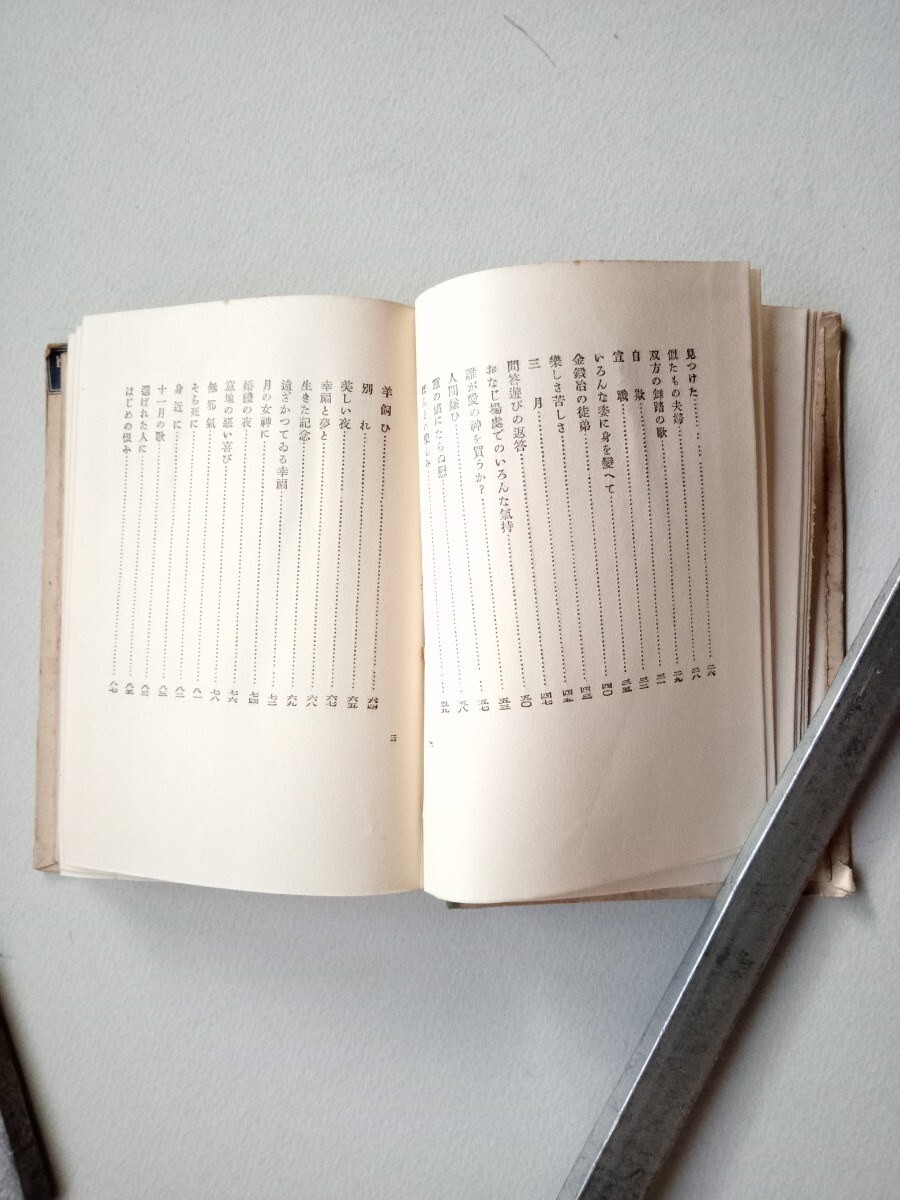 見つけた……二六
似たもの夫婦……二八
双方の舞踏の歌……二九
自欺……三一
宣戰……三二
いろんな姿に身を變へて……三五
金鍛冶の徒弟……四〇
樂しさ苦しさ……四三
三月……四五
問答遊びの返答……四七
おなじ場處でのいろんな氣持……五〇
誰が愛の神を買うか?……五三
人間嫌ひ……五七
意の儘にならぬ戀……五八
五九
羊飼ひ……六四
別れ……六五
美しい夜……六七
幸福と夢と……六八
生きた記念……六九
遠ざかつてゐる幸福……七二
月の女神に……七四
婚禮の夜……七六
意地の惡い喜び……七八
無邪氣……八一
そら死に……八二
身近に……八三
十一月の歌……八三
選ばれた人に……八五
はじめの恨み……八七
三